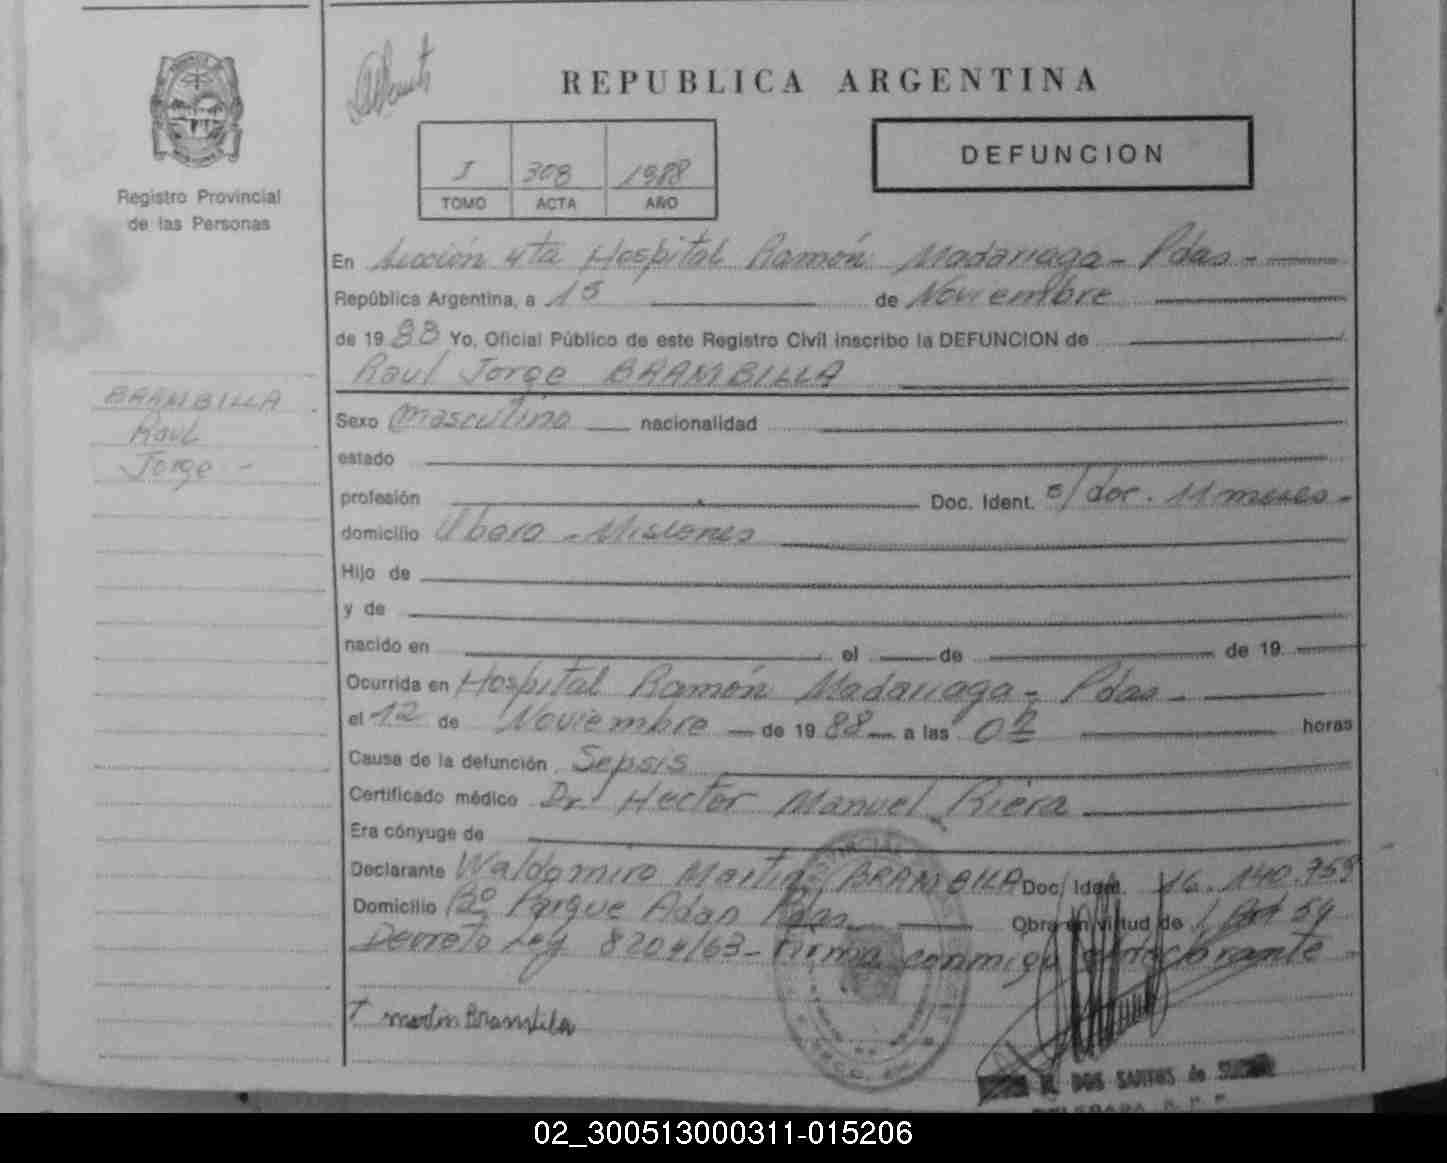 REPUBLICA ARGENTINA
Registro Provincial
de las Personas
I 308 1988
TOMO ACTA AÑO
DEFUNCION
En Sección 4ta Hospital Ramón Madariaga - Pdas -
República Argentina, a 15 de Noviembre
de 19 88 Yo, Oficial Público de este Registro Civil inscribo la DEFUNCION de
Raul Jorge BRAMBILLA
BRAMBILLA
Raul
Jorge -
Sexo masculino nacionalidad
estado
profesión Doc. Ident. s/doc. 11 meses -
domicilio Obera - Misiones
Hijo de
y de
nacido en el de de 19
Ocurrida en Hospital Ramón Madariaga - Pdas -
el 12 de Noviembre de 19 88 a las 02 horas
Causa de la defunción Sepsis
Certificado médico Dr. Hector Manuel Riera
Era cónyuge de
Declarante Waldomiro Martin BRAMBILA Doc. Ident. 16.140.759
Domicilio Bº Parque Adam Pdas Obra en virtud de Art 59
Decreto Ley 8204/63 - Firma conmigo declarante
martin Brambila
DOS SANTOS de
DELEGADA R.P.P.
02_300513000311-015206